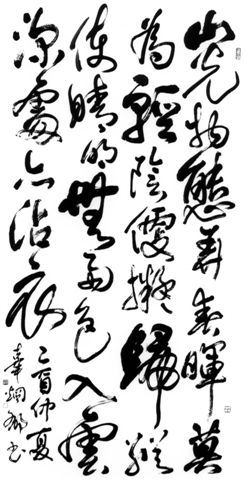 山光物態弄春暉莫
為輕陰便擬歸縱
使晴明無雨色入雲
深處亦沾衣
乙酉仲夏
書